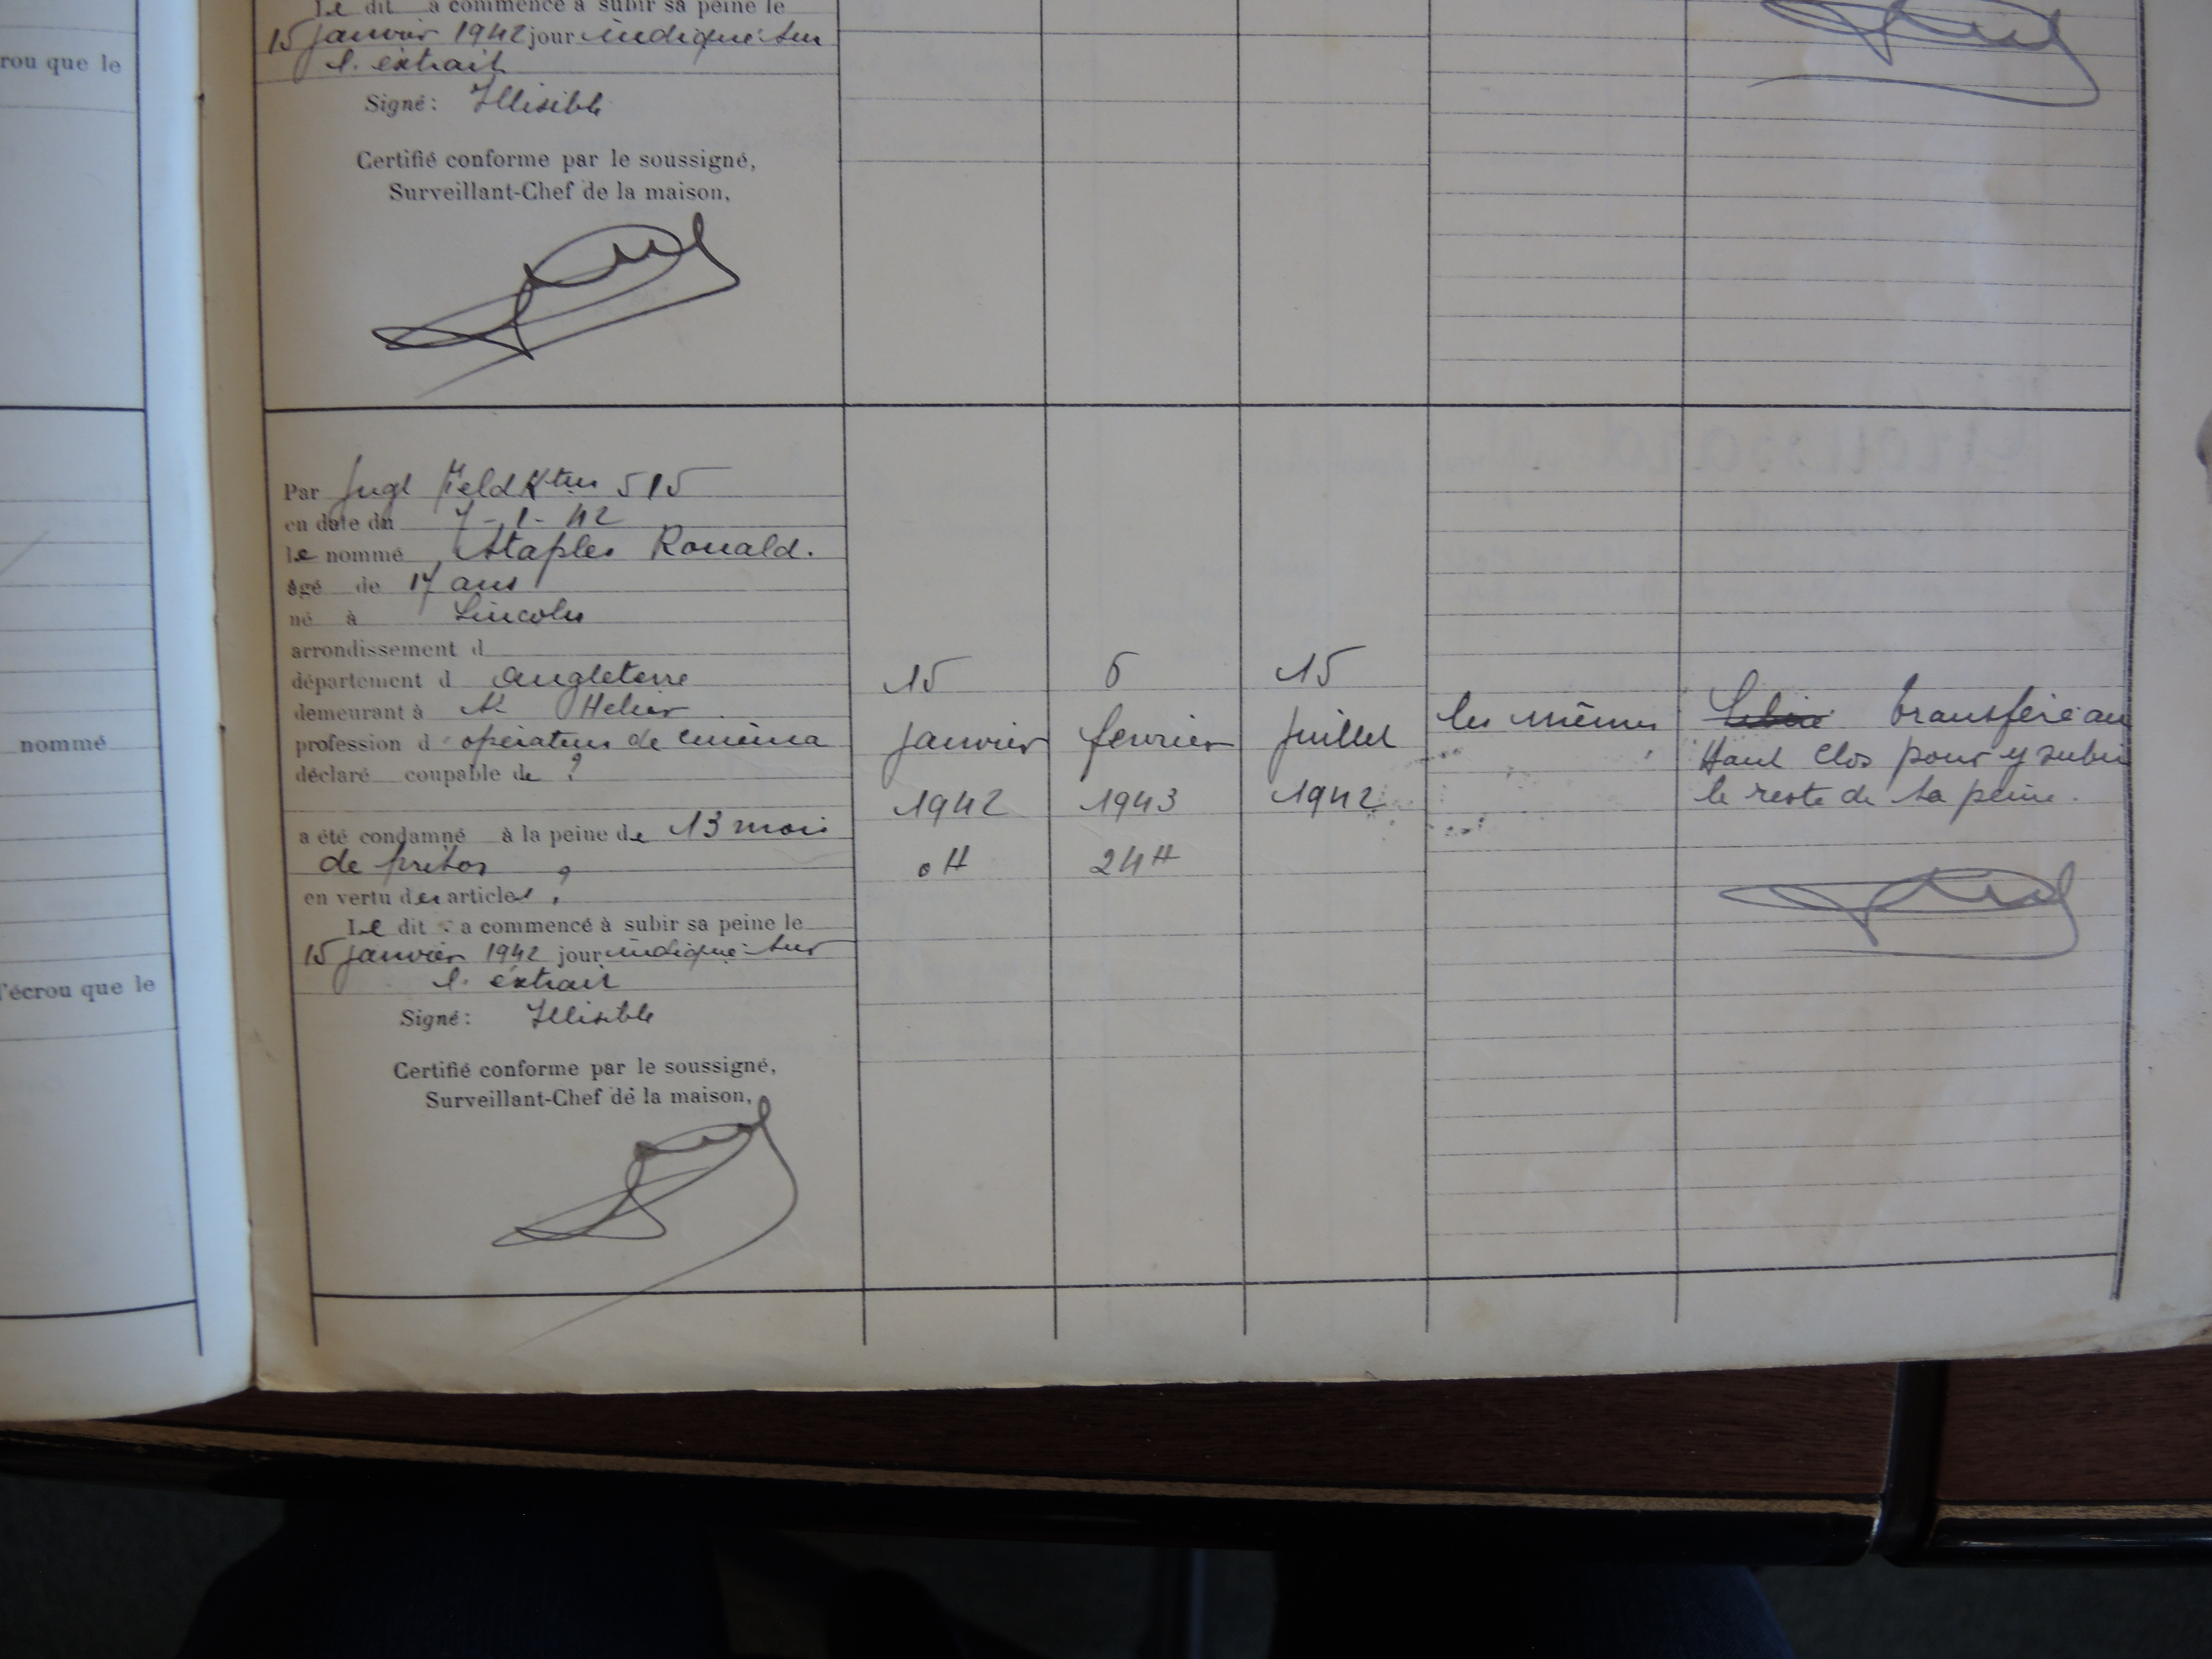 rou que le
nommé
l'écrou que le
Le dit a commencé à subir sa peine le
15 janvier 1942 jour indiqué sur
l'extrait
Signé: Illisible
Certifié conforme par le soussigné,
Surveillant-Chef de la maison,
Par Jugt Feld Ktur 515
en date du 7-1-42
le nommé Staples Ronald.
âgé de 17 ans
né à Lincoln
arrondissement d
département d Angleterre
demeurant à St Helier
profession d opérateur de cinéma
déclaré coupable de ?
a été condamné à la peine de 13 mois
de prison
en vertu des articles ?
Le dit a commencé à subir sa peine le
15 janvier 1942 jour indiqué sur
l'extrait
Signé: Illisible
Certifié conforme par le soussigné,
Surveillant-Chef de la maison,
15
janvier
1942
0H
6
fevrier
1943
24H
15
Juillet
1942
les mêmes
Libéré transféré au
Haut Clos pour y subir
le reste de sa peine.